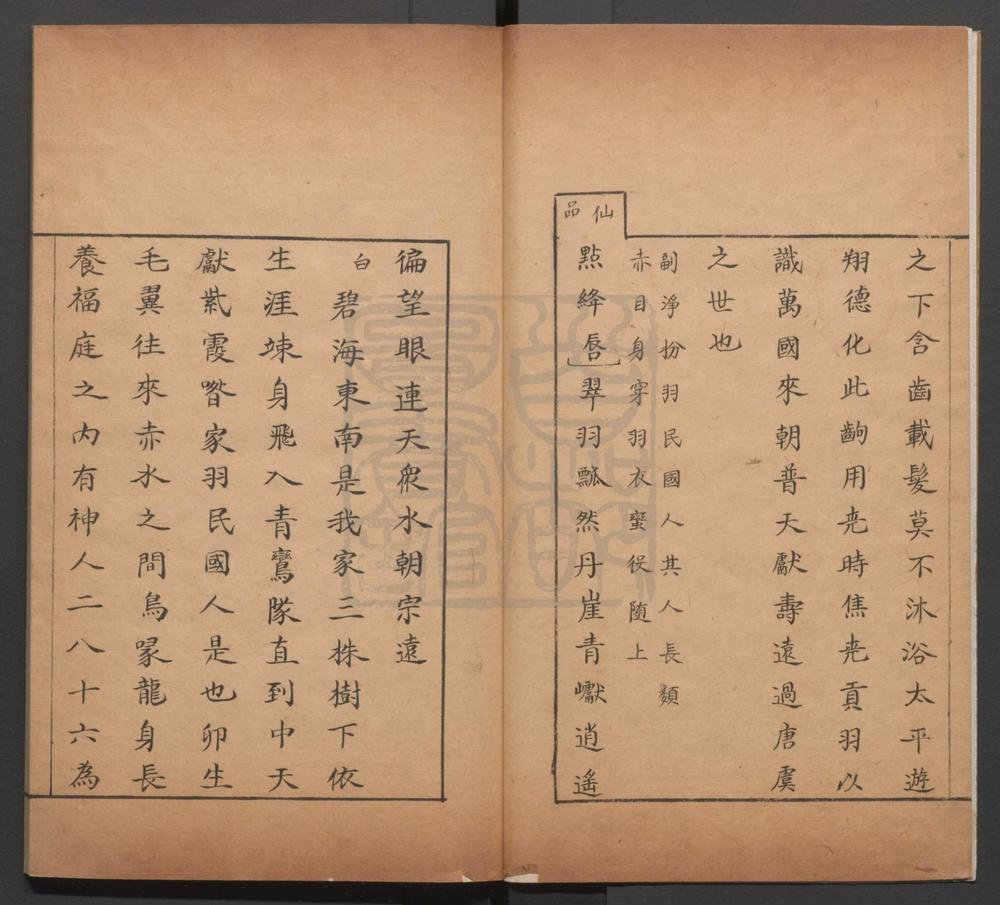 之下含齒載髮莫不沐浴太平遊
翔德化此齣用尭時僬尭貢羽以
識萬國來朝普天獻壽遠過唐虞
之世也
仙品
副淨扮羽民國人其人長頰
赤目身穿羽衣蠻役随上
點絳唇翠羽飄然丹崖青巘逍遙
徧望眼連天衆水朝宗遠
白
碧海東南是我家三株樹下依
生涯竦身飛入青鸞隊直到中天
獻紫霞喒家羽民國人是也卵生
毛翼往來赤水之間鳥喙龍身長
養福庭之內有神人二八十六為